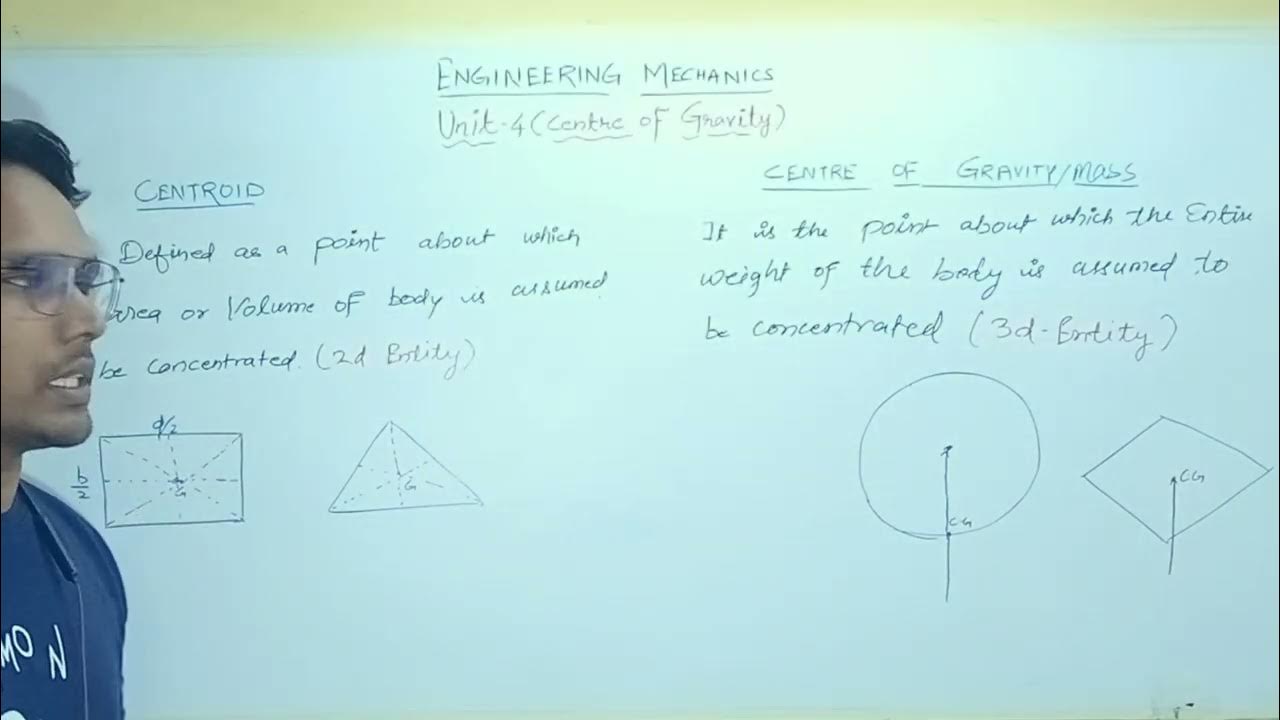 ENGINEERING MECHANICS
Unit-4 (Centre of Gravity)
CENTROID
Defined as a point about which
area or Volume of body is assumed
be concentrated. (2d Entity)
d/2
b/2
G
G
CENTRE OF GRAVITY/MASS
It is the point about which the Entire
weight of the body is assumed to
be concentrated (3d-Entity)
CG
CG
MON